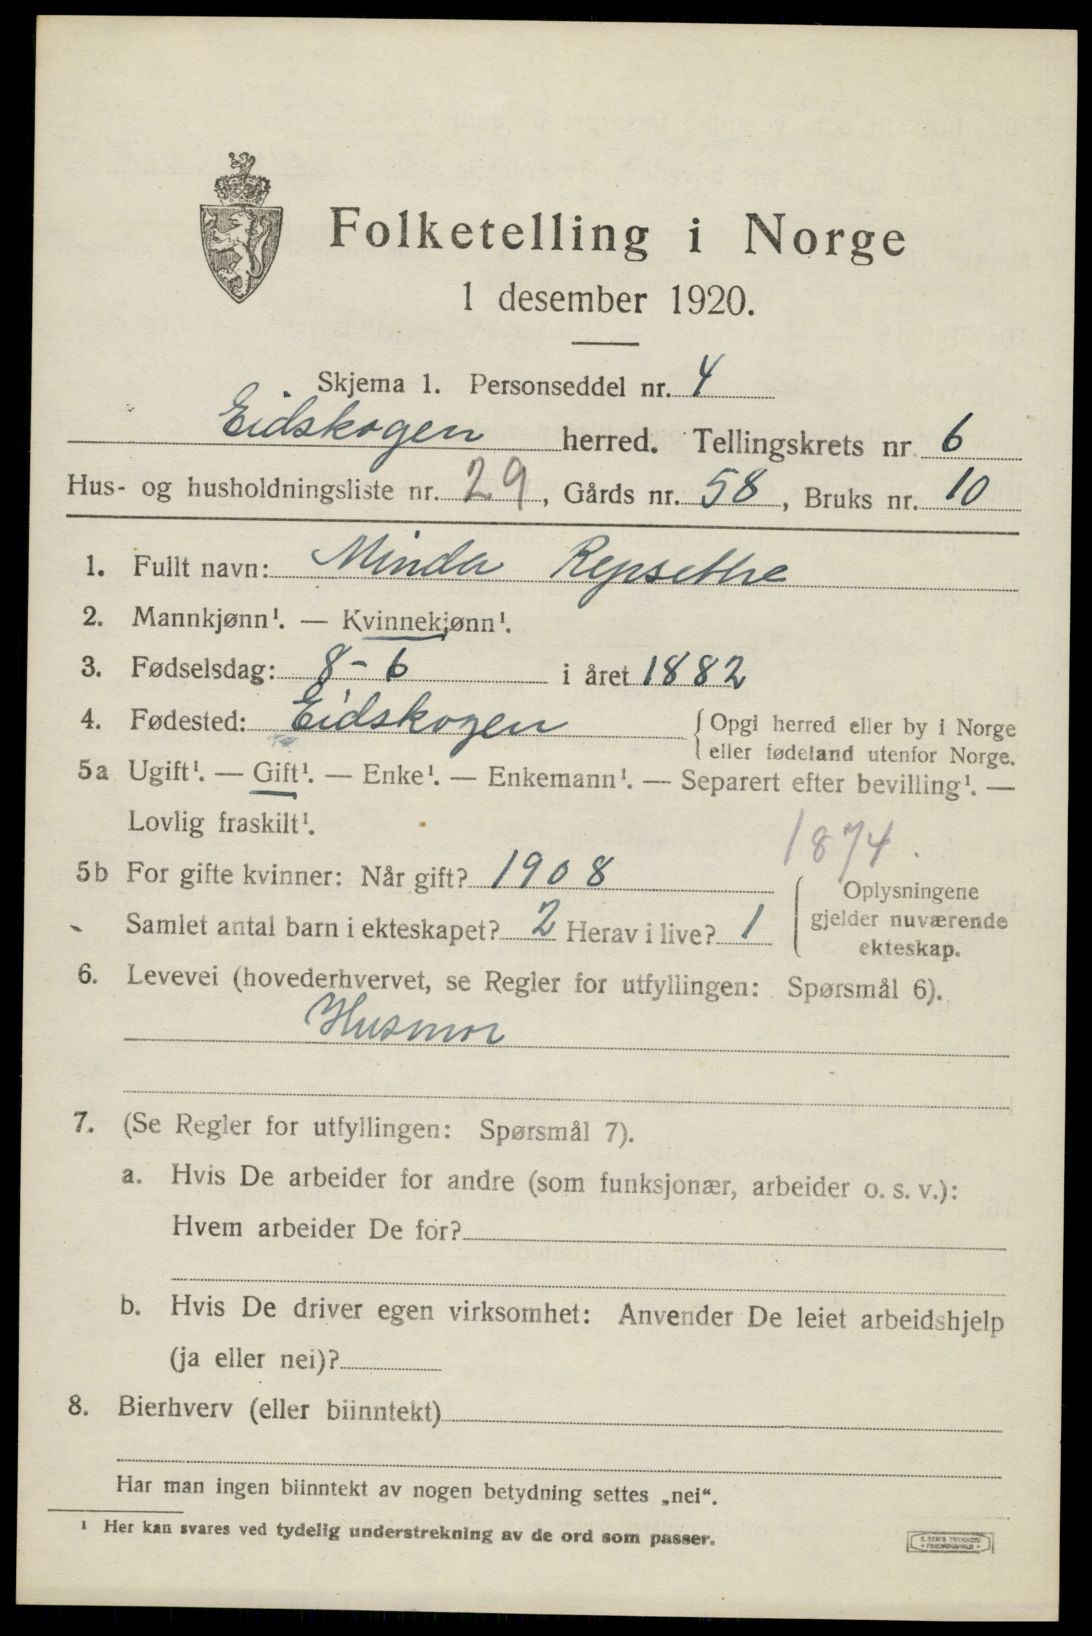 Folketelling i Norge
1 desember 1920.
Skjema 1. Personseddel nr. 4
Eidskogen herred. Tellingskrets nr. 6
Hus- og husholdningsliste nr. 29, Gårds nr. 58, Bruks nr. 10
1. Fullt navn: Minda Repsethe
2. Mannkjønn¹. — Kvinnekjønn¹.
3. Fødselsdag: 8-6 i året 1882
4. Fødested: Eidskogen {Opgi herred eller by i Norge
eller fødeland utenfor Norge.
5a Ugift¹. — Gift¹. — Enke¹. — Enkemann¹. — Separert efter bevilling¹. —
Lovlig fraskilt¹.
1874.
5b For gifte kvinner: Når gift? 1908
Samlet antal barn i ekteskapet? 2 Herav i live? 1
{Oplysningene
gjelder nuværende
ekteskap.
6. Levevei (hovederhvervet, se Regler for utfyllingen: Spørsmål 6).
Husmor
7. (Se Regler for utfyllingen: Spørsmål 7).
a. Hvis De arbeider for andre (som funksjonær, arbeider o. s. v.):
Hvem arbeider De for?
b. Hvis De driver egen virksomhet: Anvender De leiet arbeidshjelp
(ja eller nei)?
8. Bierhverv (eller biinntekt)
Har man ingen biinntekt av nogen betydning settes „nei“.
¹ Her kan svares ved tydelig understrekning av de ord som passer.